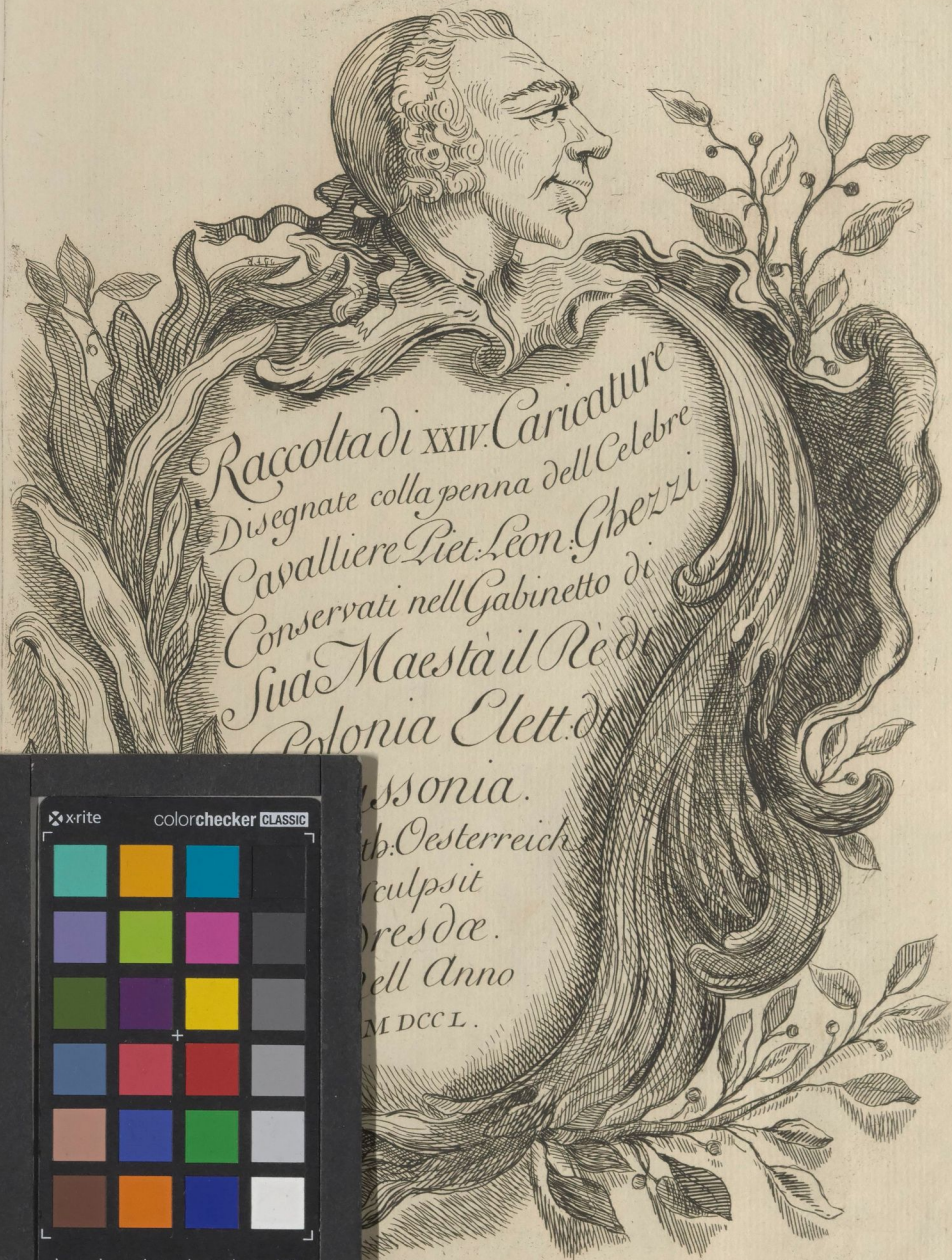 Raccolta di XXIV. Caricature
Disegnate colla penna dell Celebre
Cavalliere Piet: Leon: Ghezzi.
Conservati nell Gabinetto di
Sua Maestà il Rè di
Polonia Elett: di
ssonia.
th: Oesterreich
sculpsit
resdæ.
ell Anno
M DCC L.
x-rite
colorchecker CLASSIC